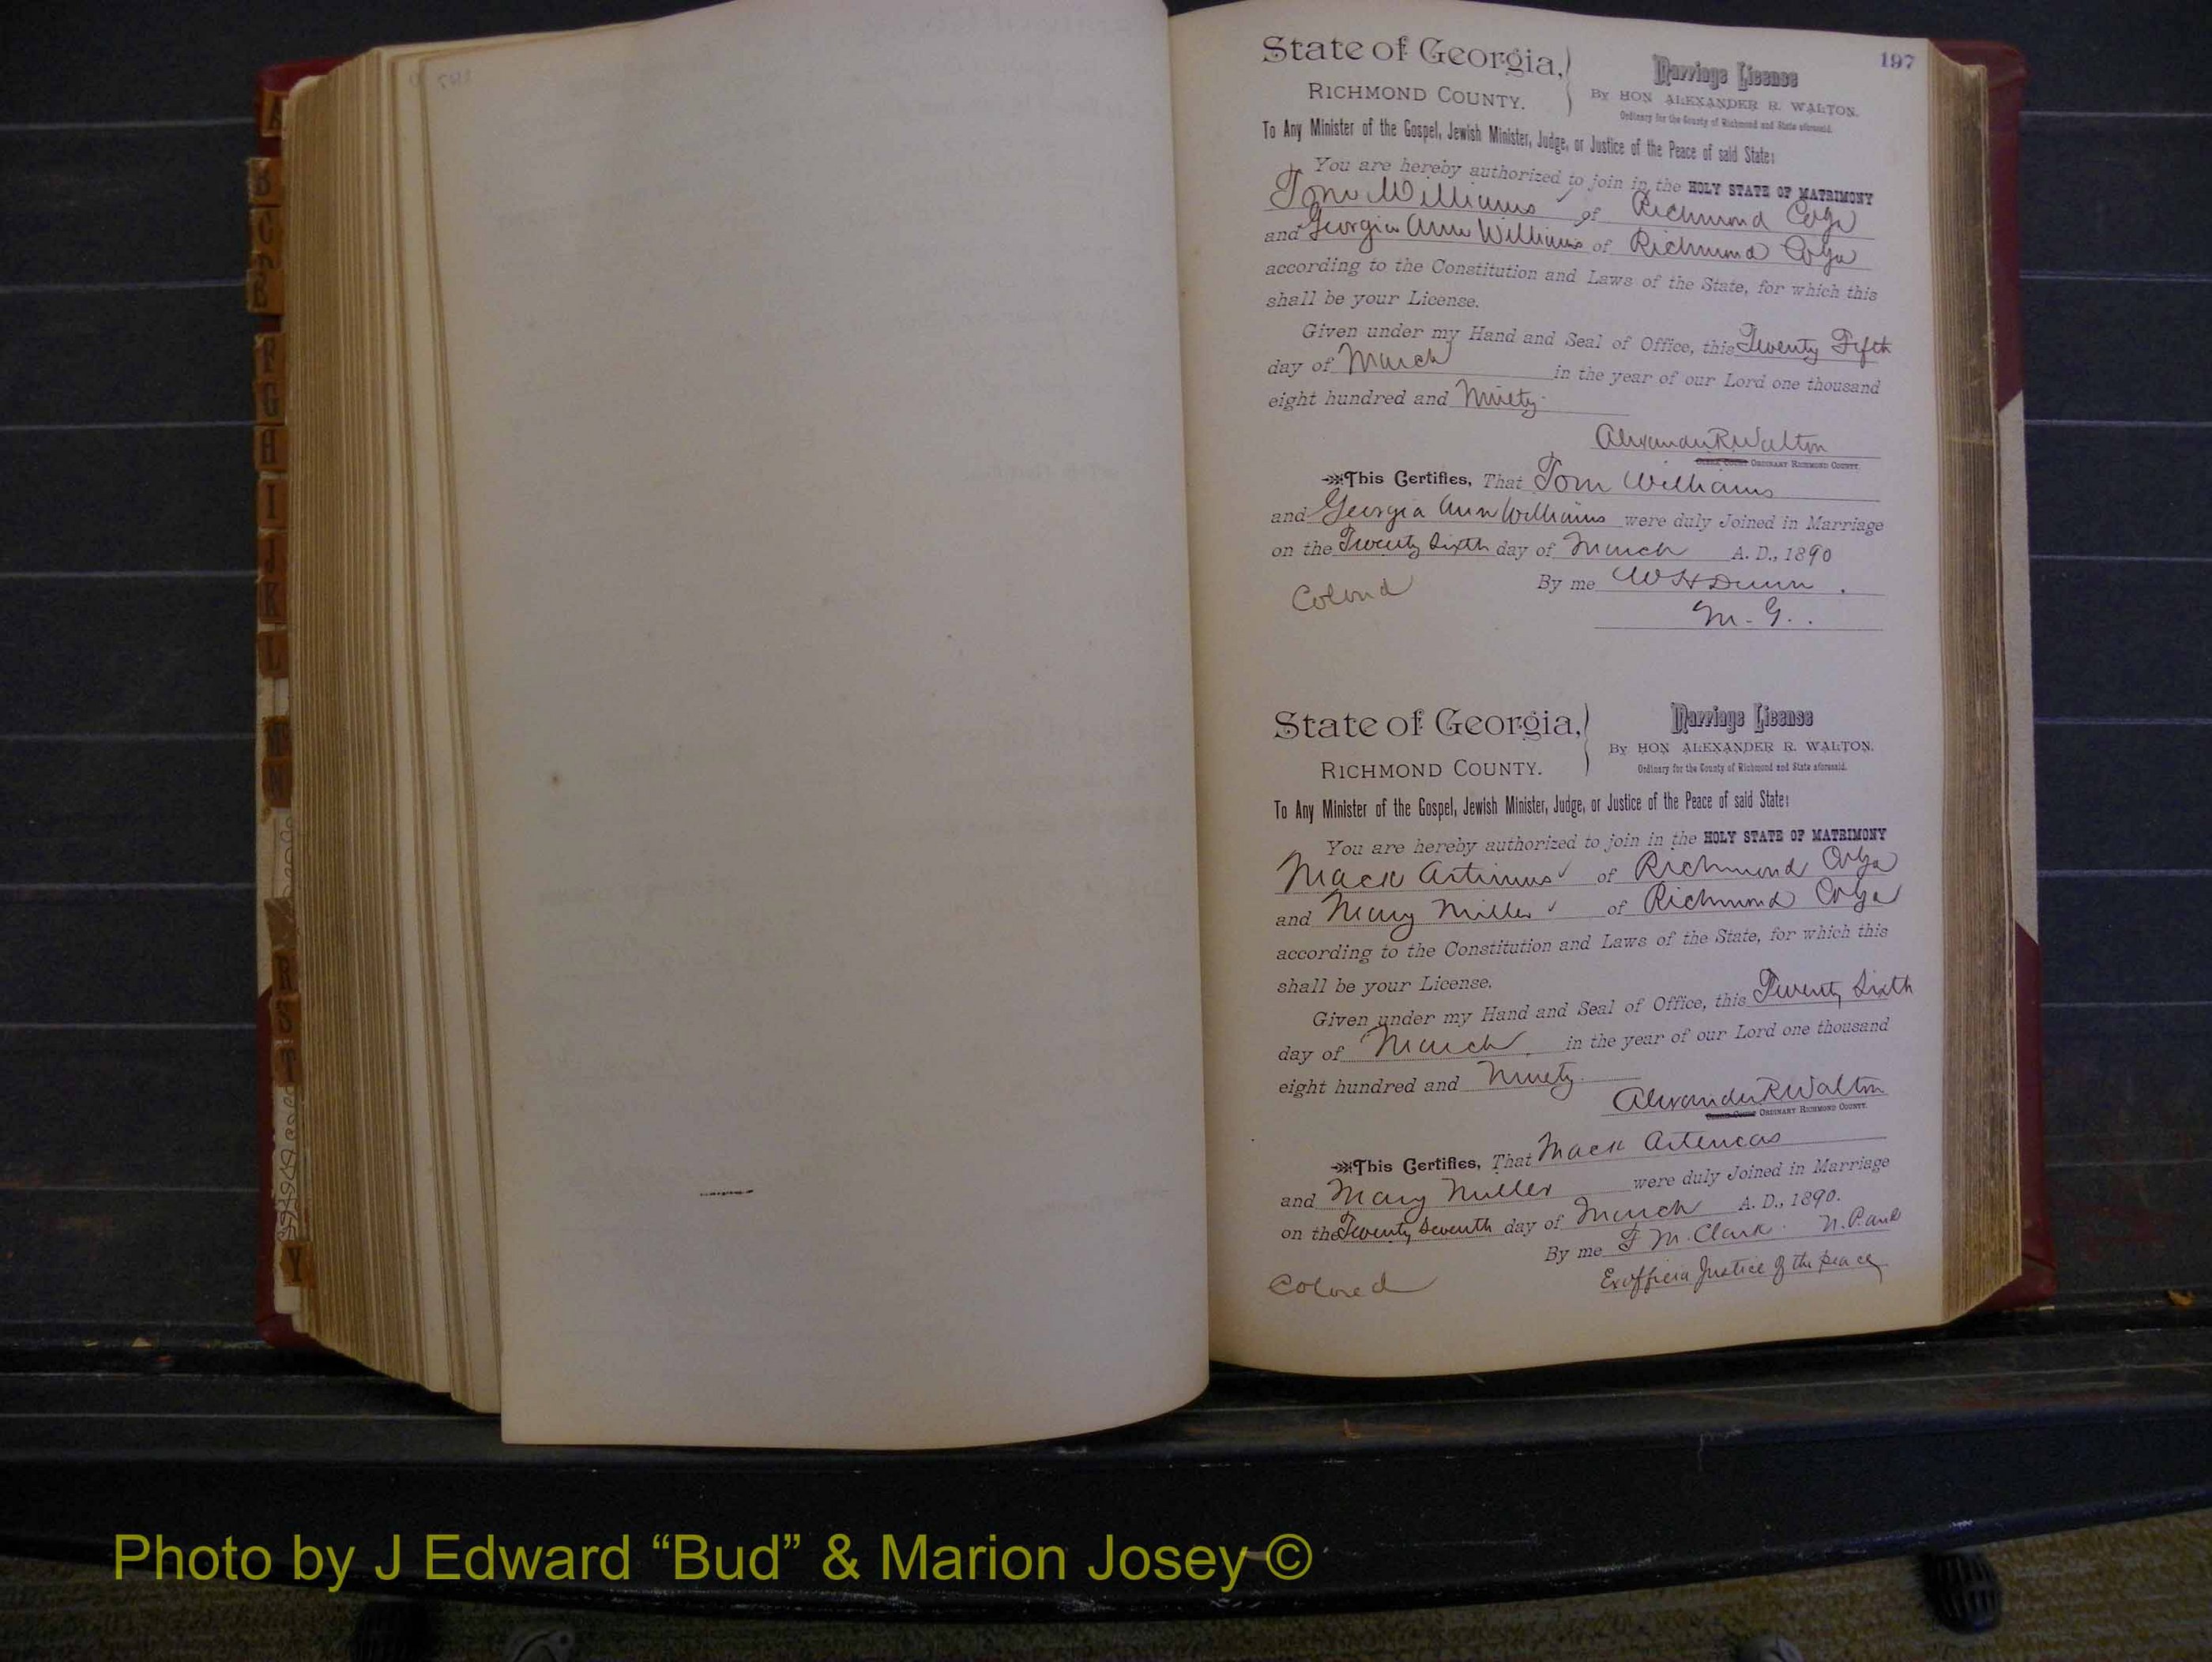 197
State of Georgia,
RICHMOND COUNTY.
Marriage License
By HON ALEXANDER R. WALTON.
Ordinary for the County of Richmond and State aforesaid.
To Any Minister of the Gospel, Jewish Minister, Judge, or Justice of the Peace of said State:
You are hereby authorized to join in the HOLY STATE OF MATRIMONY
Tom Williams of Richmond Co Ga
and Georgia Ann Williams of Richmond Co Ga
according to the Constitution and Laws of the State, for which this
shall be your License.
Given under my Hand and Seal of Office, this Twenty Fifth
day of March in the year of our Lord one thousand
eight hundred and Ninety
Alexander R Walton
ORDINARY RICHMOND COUNTY.
This Certifies, That Tom Williams
and Georgia Ann Williams were duly Joined in Marriage
on the Twenty Sixth day of March A. D., 1890
Colored By me W H Dunn.
M. G..
State of Georgia,
RICHMOND COUNTY.
Marriage License
By HON ALEXANDER R. WALTON.
Ordinary for the County of Richmond and State aforesaid.
To Any Minister of the Gospel, Jewish Minister, Judge, or Justice of the Peace of said State:
You are hereby authorized to join in the HOLY STATE OF MATRIMONY
Mack Artimus of Richmond Co Ga
and Mary Miller of Richmond Co Ga
according to the Constitution and Laws of the State, for which this
shall be your License.
Given under my Hand and Seal of Office, this Twenty Sixth
day of March in the year of our Lord one thousand
eight hundred and Ninety
Alexander R Walton
ORDINARY RICHMOND COUNTY.
This Certifies, That Mack Artemas
and Mary Miller were duly Joined in Marriage
on the Twenty Seventh day of March A. D., 1890.
By me F. M. Clark. N. P. and
Colored Exofficia Justice of the peace
A
B
C
F
G
H
I
J
K
L
M
N
R
S
T
Y
Photo by J Edward “Bud” & Marion Josey ©